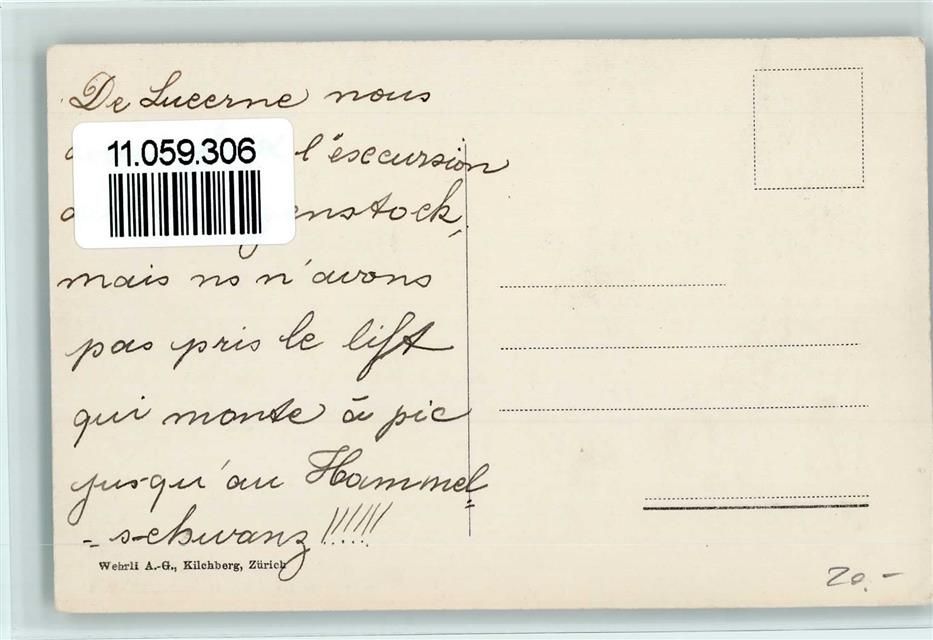 De Lucerne nous
11.059.306
l'éxcursion
enstock,
mais ns n'avons
pas pris le lift
qui monte à pic
jusqu'au Hammel=
=schwanz!!!!!!
Wehrli A.-G., Kilchberg, Zürich
20.-